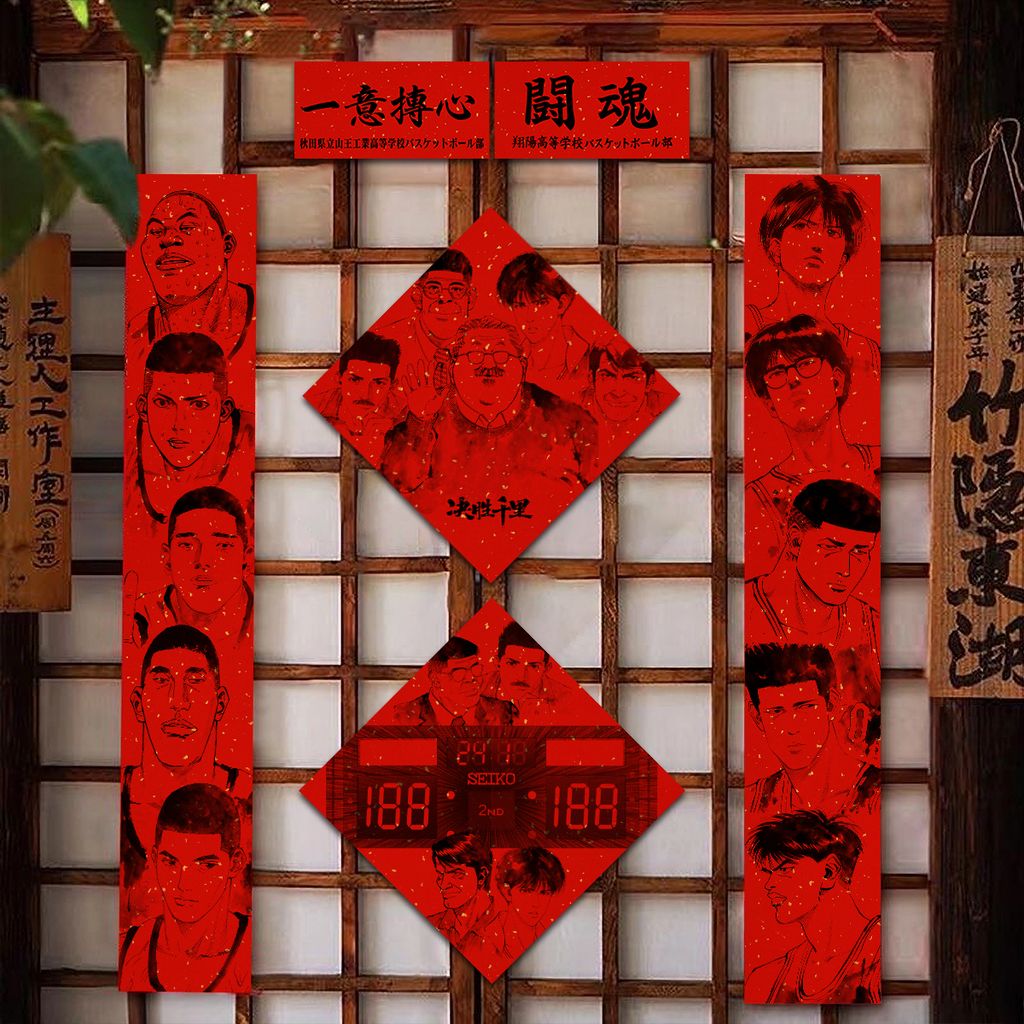 一意搏心
秋田県立山王工業高等学校バスケットボール部
闘魂
翔陽高等学校バスケットボール部
决胜千里
24:10
SEIKO
188
2ND
188
主理人工作室(周五周六)
始造庚子年
竹隱東湖